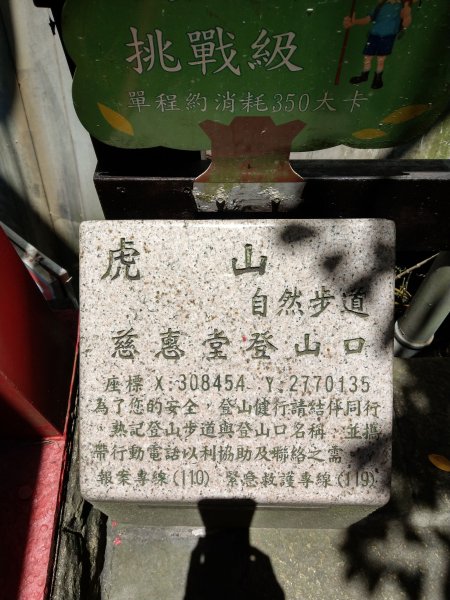 挑戰級
單程約消耗350大卡
虎山
自然步道
慈惠堂登山口
座標 X:308454 Y:2770135
為了您的安全，登山健行請結伴同行
，熟記登山步道與登山口名稱，並攜
帶行動電話以利協助及聯絡之需。
報案專線(110) 緊急救護專線(119)